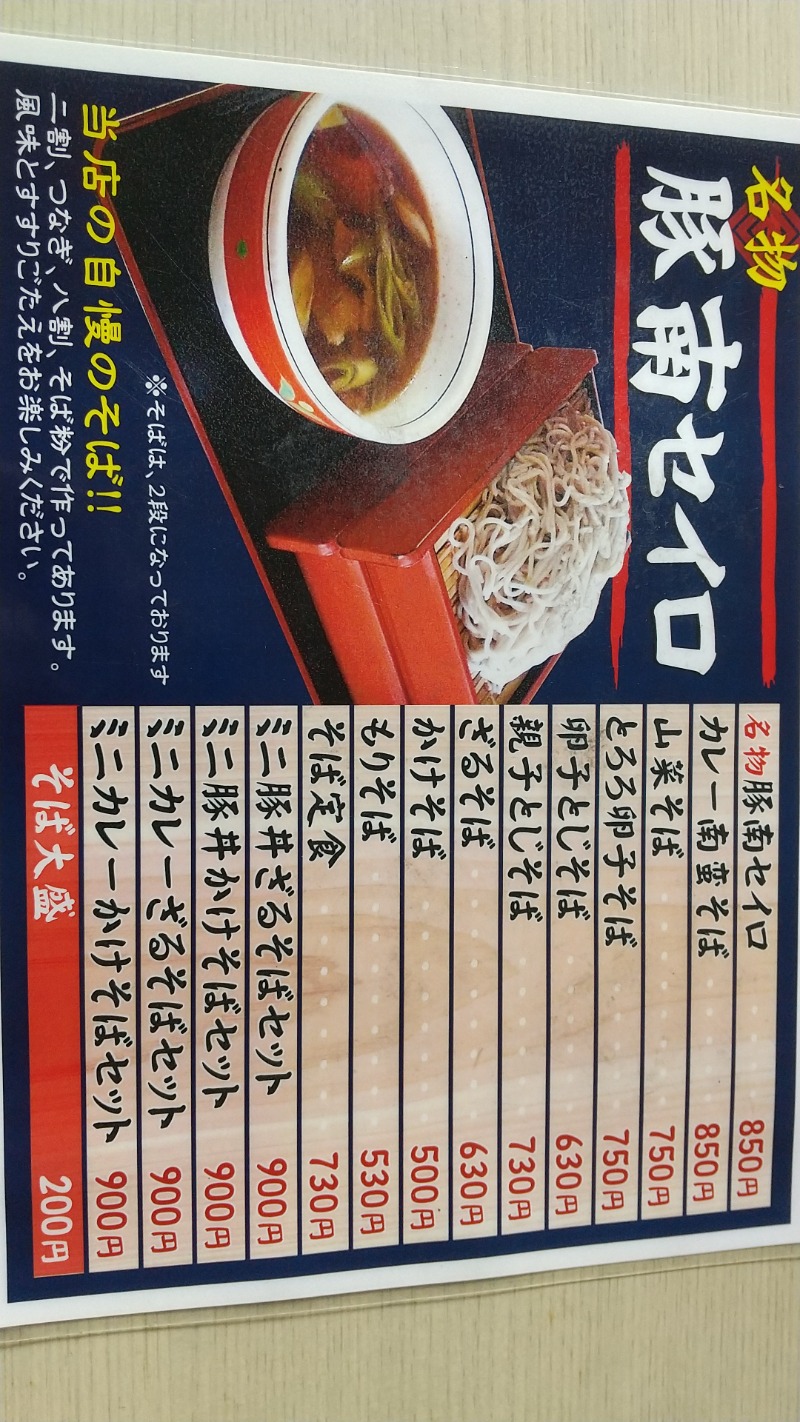 名物
豚南セイロ
※そばは、2段になっております
当店の自慢のそば!!
二割、つなぎ、八割、そば粉で作ってあります。
風味とすすりごたえをお楽しみください。
名物豚南セイロ 850円
カレー南蛮そば 850円
山菜そば 750円
とろろ卵子そば 750円
卵子とじそば 630円
親子とじそば 730円
ざるそば 630円
かけそば 500円
もりそば 530円
そば定食 730円
ミニ豚丼ざるそばセット 900円
ミニ豚丼かけそばセット 900円
ミニカレーざるそばセット 900円
ミニカレーかけそばセット 900円
そば大盛 200円